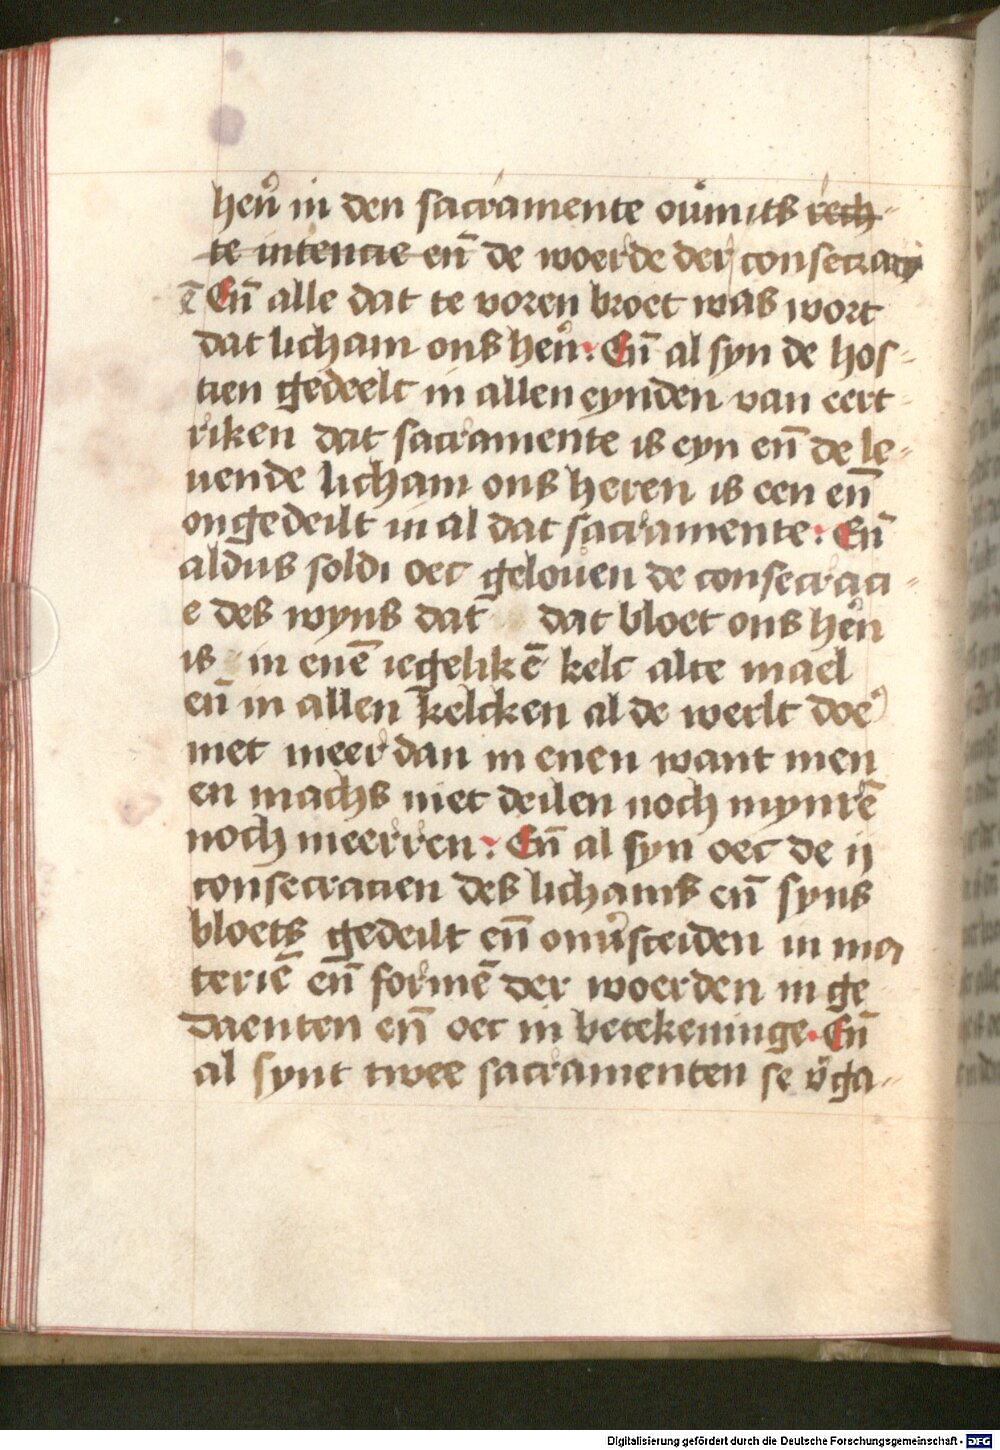 heͬn in den sacramente oͧmits rech-
te intencie en̄ de woerde der consecracy
ē En̄ alle dat te voren broet was wort
dat licham ons heͬn: En̄ al syn de hos-
tien gedeelt in allen eynden van eert-
riken dat sacramente is eyn en̄ de le-
uende licham ons heren is een en̄
ongedeilt in al dat sacramente: En̄
aldus soldi oec gelouen de consecraci-
e des wyns dat dat bloet ons heͬn
is in enē iegelikē kelc alte mael
en̄ in allen kelcken al de werlt doeͬ
niet meer dan in enen want men
en machs niet deilen noch mynrē
noch meerren: En̄ al syn oec de ij
consecracien des lichams en̄ syns
bloets gedeilt en̄ onuͬsceiden in ma
teriē en̄ formē der woerden in ge
daenten en̄ oec in betekeninge. En̄
al synt twee sacramenten se vͬga-
Digitalisierung gefördert durch die Deutsche Forschungsgemeinschaft - DFG